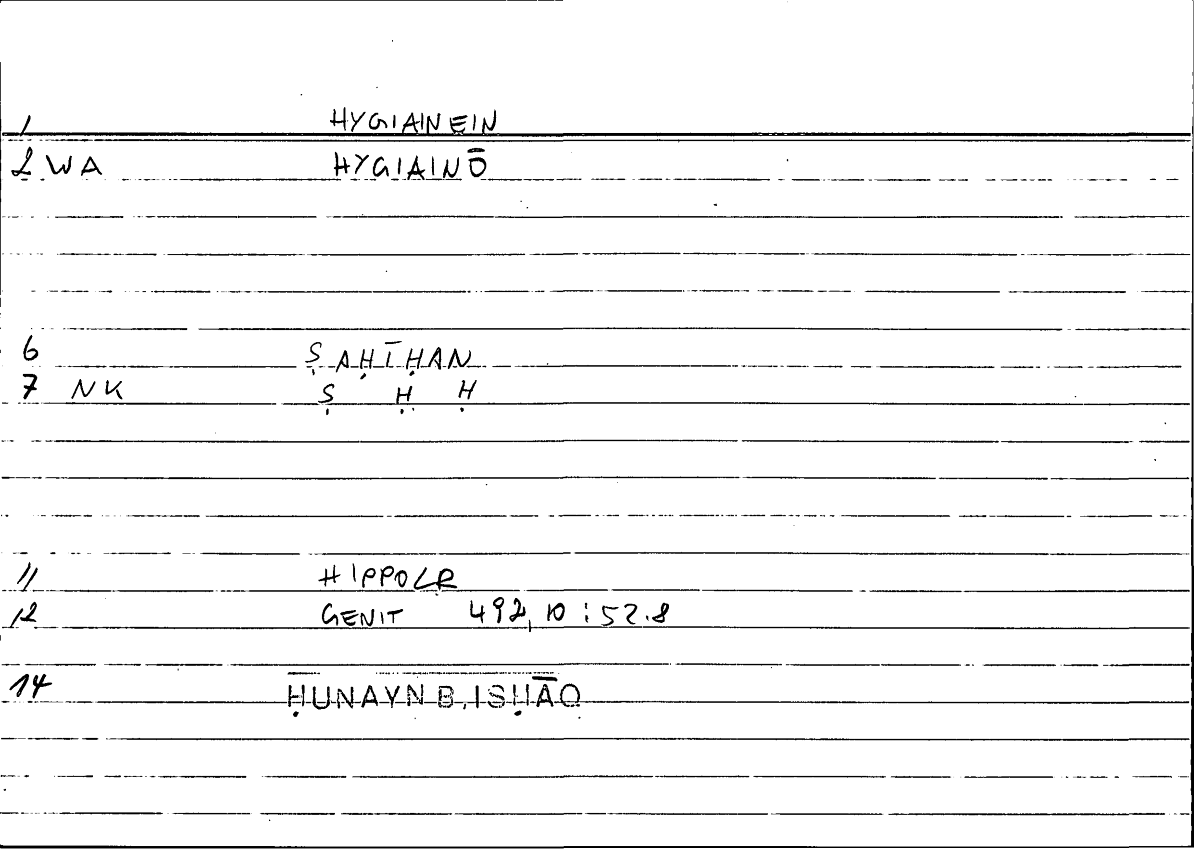 1 HYGIAINEIN
2 WA HYGIAINŌ
6 ṢAḤĪḤAN
7 NK Ṣ Ḥ Ḥ
11 HIPPOCR
12 GENIT 492,10 : 52.8
14 ḤUNAYN B. ISḤĀQ